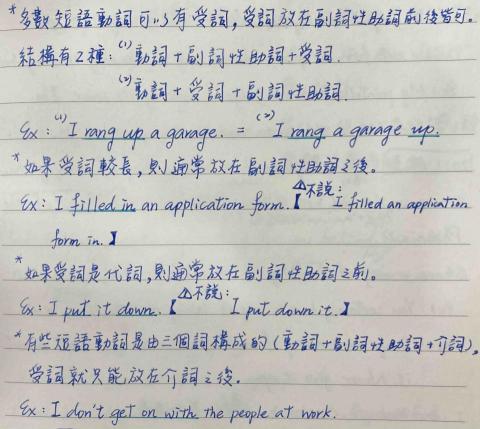 *多數短語動詞可以有受詞,受詞放在副詞性助詞前後皆可。
結構有2種:(1)動詞+副詞性助詞+受詞.
(2)動詞+受詞+副詞性助詞.
Ex:(1)I rang up a garage. = (2)I rang a garage up.
*如果受詞較長,則通常放在副詞性助詞之後。
Ex: I filled in an application form.【△不說: I filled an application
form in.】
*如果受詞是代詞,則通常放在副詞性助詞之前。
Ex: I put it down.【△不說: I put down it.】
*有些短語動詞是由三個詞構成的(動詞+副詞性助詞+介詞),
受詞就只能放在介詞之後。
Ex: I don't get on with the people at work.